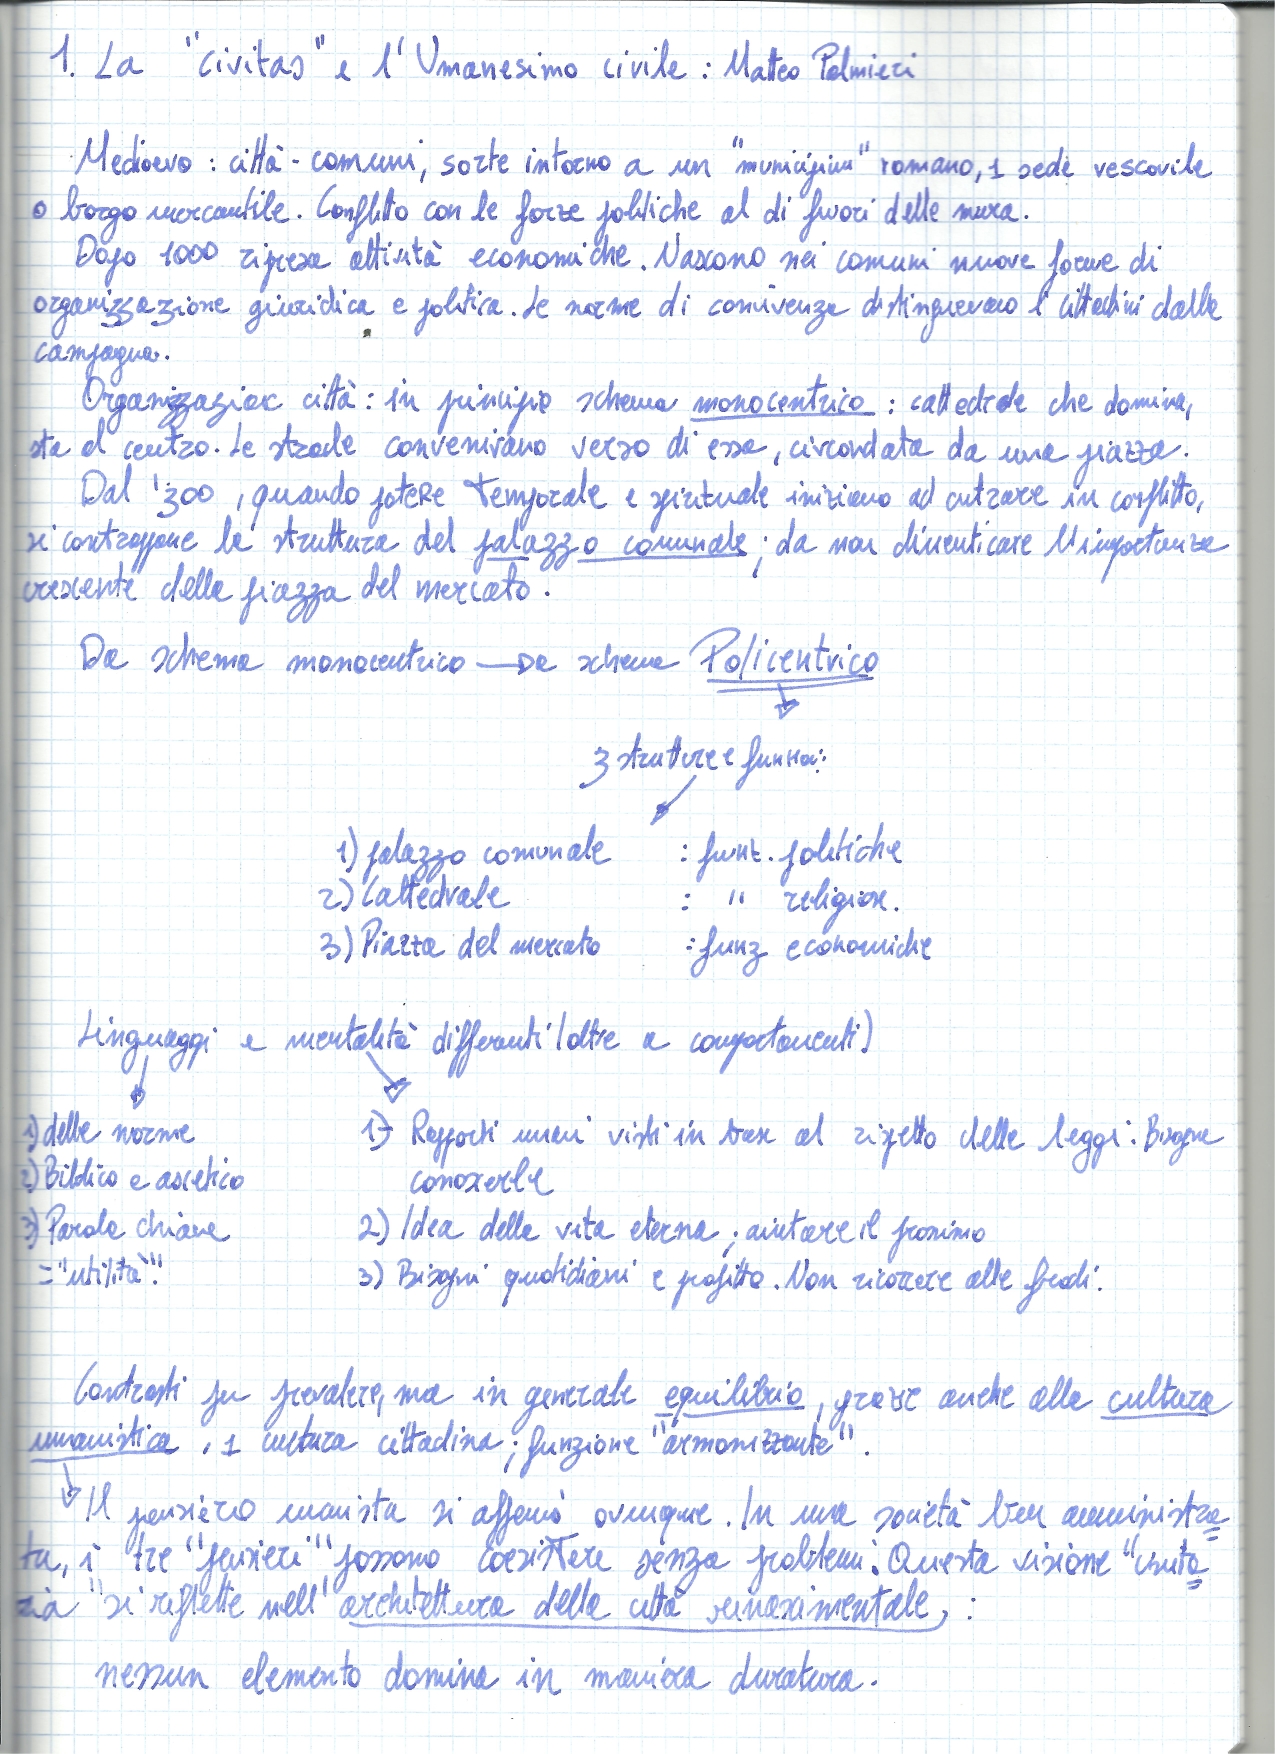 1. La "civitas" e l'Umanesimo civile : Matteo Palmieri
Medioevo : città - comuni, sorte intorno a un "municipium" romano, 1 sede vescovile
o borgo mercantile. Conflitto con le forze politiche al di fuori delle mura.
Dopo 1000 ripresa attività economiche. Nascono nei comuni nuove forme di
organizzazione giuridica e politica. Le norme di convivenza distinguevano i cittadini dalla
campagna.
Organizzazione città : in principio schema monocentrico : cattedrale che domina,
sta al centro. Le strade convenivano verso di essa, circondata da una piazza.
Dal '300, quando potere temporale e spirituale iniziano ad entrare in conflitto,
si contrappone la struttura del palazzo comunale ; da non dimenticare l'importanza
crescente della piazza del mercato.
Da schema monocentrico → a schema Policentrico
3 strutture e funzioni:
1) palazzo comunale : funz. politiche
2) Cattedrale : " religiose.
3) Piazza del mercato : funz economiche
Linguaggi e mentalità differenti (oltre a comportamenti)
1) delle norme 1) Rapporti umani visti in base al rispetto delle leggi. Bisogna
2) Biblico e ascetico conoscerle
3) Parola chiave 2) Idea della vita eterna ; aiutare il prossimo
= "utilità". 3) Bisogni quotidiani e profitto. Non ricorrere alle frodi.
Contrasti per prevalere, ma in generale equilibrio, grazie anche alla cultura
umanistica, 1 cultura cittadina ; funzione "armonizzante".
Il pensiero umanista si affermò ovunque. In una società ben amministra=
ta, i tre "pensieri" possono coesistere senza problemi. Questa visione "unita=
ria" si riflette nell'architettura della città rinascimentale, :
nessun elemento domina in maniera duratura.